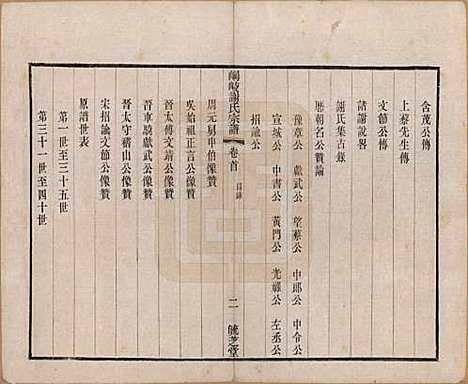 含茂公傳
上蔡先生傳
文節公傳
諸謝說畧
謝氏集古錄
歷朝名公贊論
豫章公 獻武公 望蔡公 中郎公 中令公
宣城公 中書公 黃門公 光祿公 左丞公
招諭公
謝氏宗譜 卷首 目錄 二
周元舅申伯像贊
吳始祖正言公像贊
晉太傅文靖公像贊
晉車騎獻武公像贊
晉太守稽山公像贊
宋招諭文節公像贊
原譜世表
第一世至三十五世
第三十一世至四十世